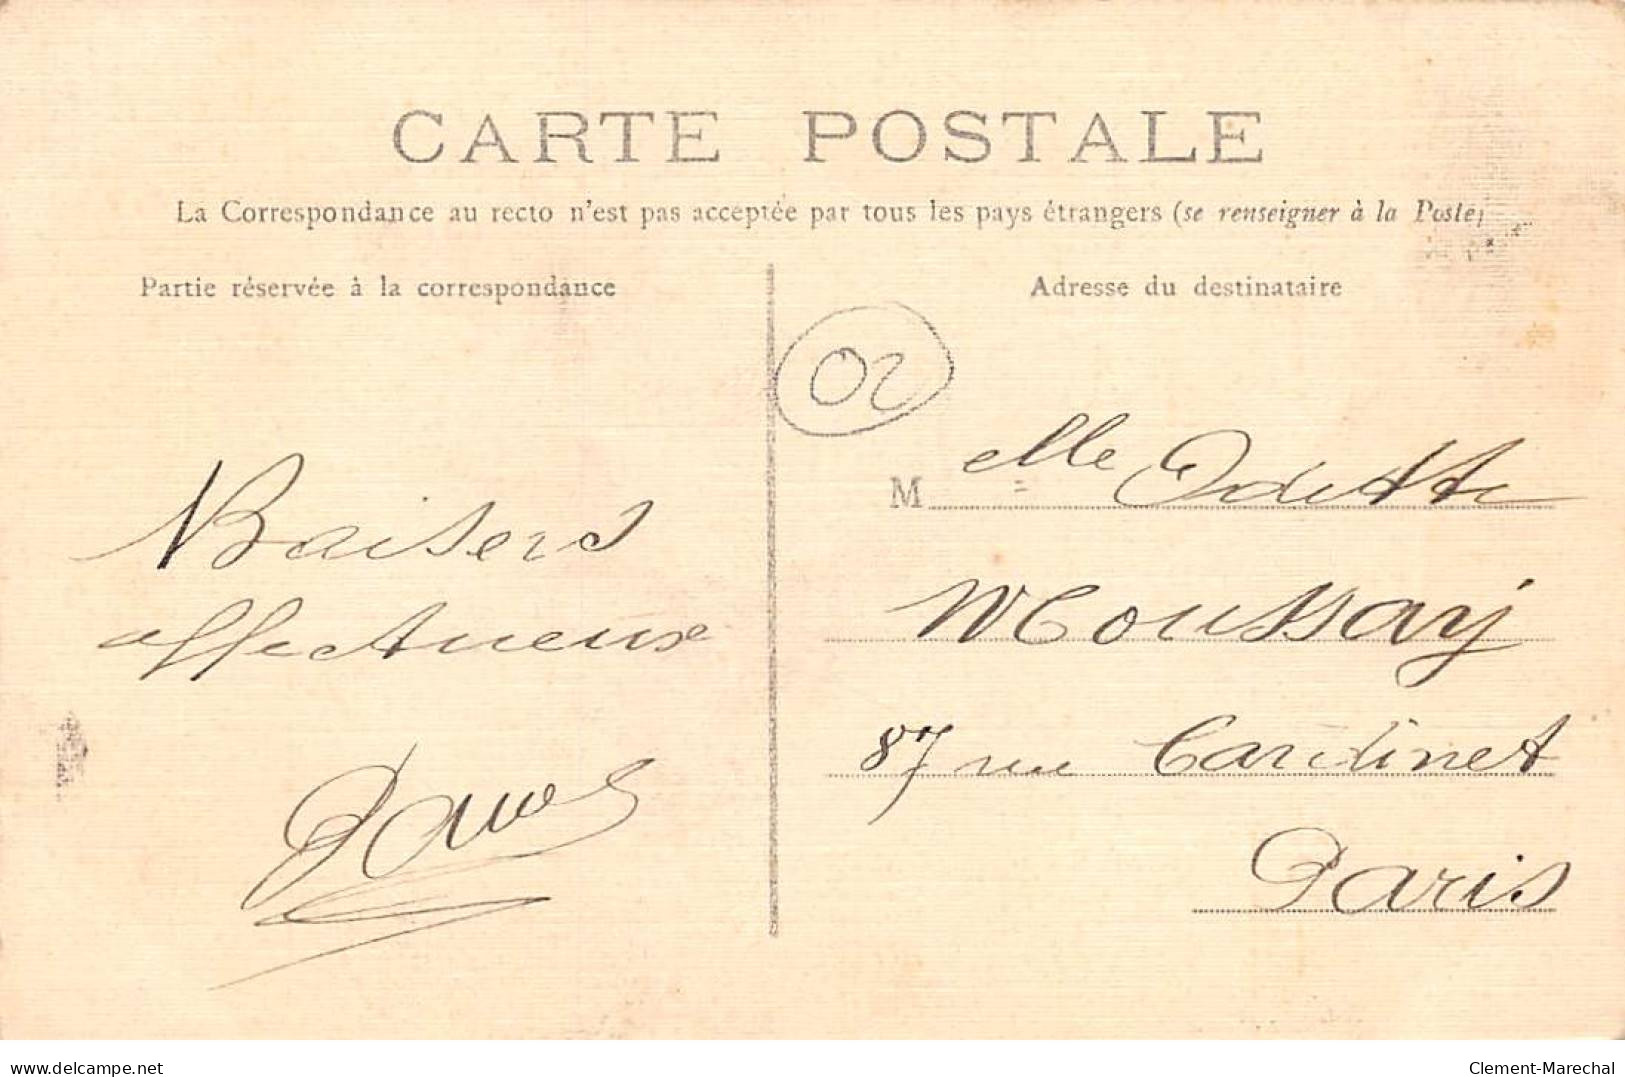 CARTE POSTALE
La Correspondance au recto n'est pas acceptée par tous les pays étrangers (se renseigner à la Poste)
Partie réservée à la correspondance
Adresse du destinataire
02
Baisers
affectueux
M elle Odette
Moussay
87 rue Cardinet
Paris
www.delcampe.net
Clement-Marechal